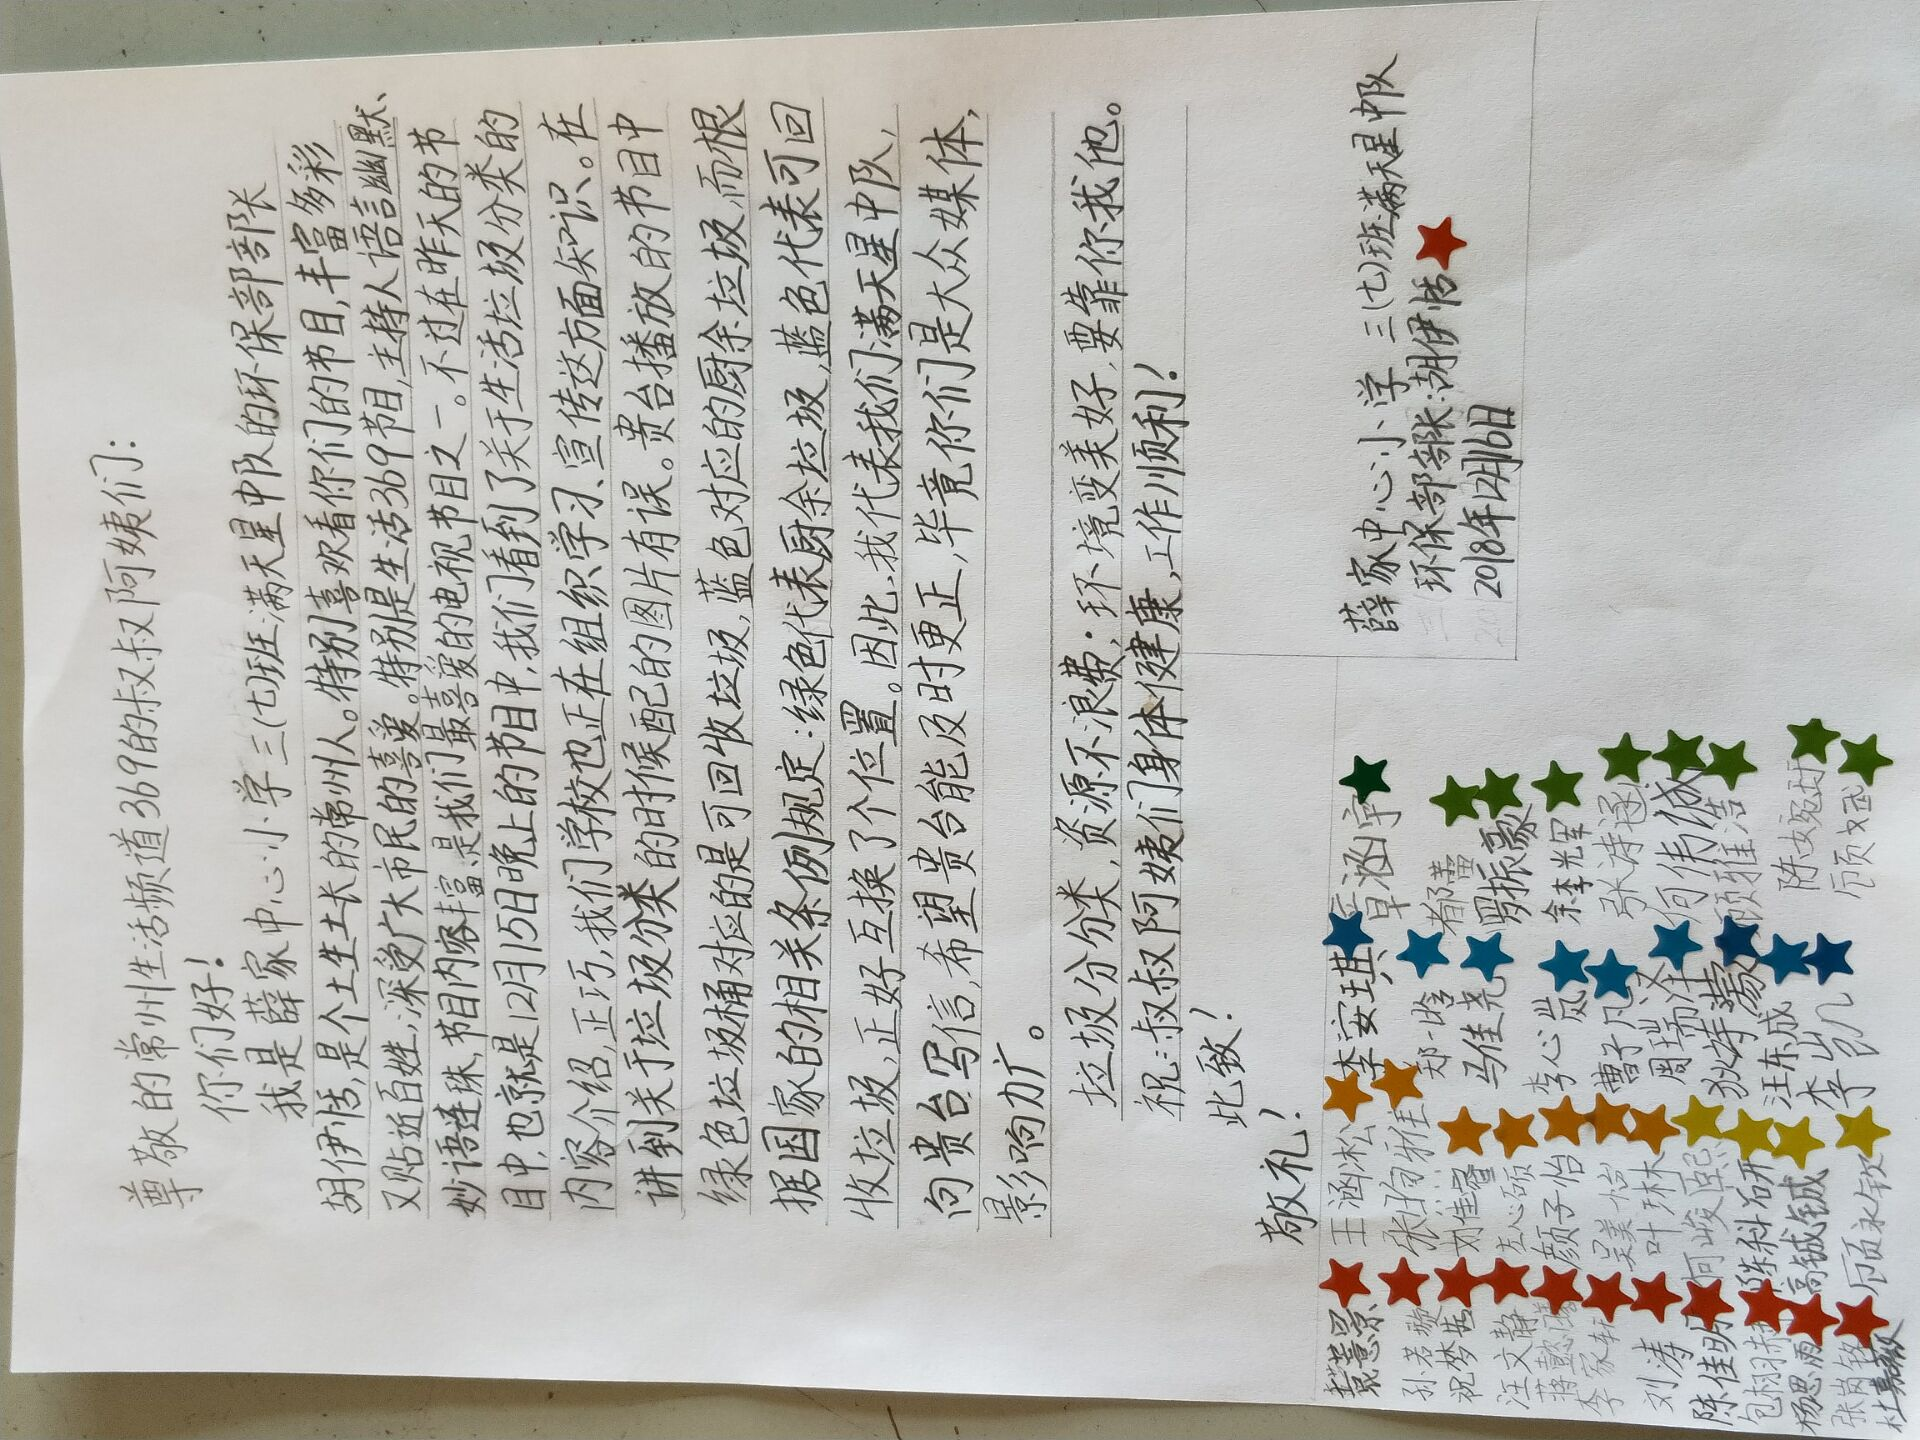 尊敬的常州生活频道369的叔叔阿姨们:
你们好!
我是薛家中心小学三(七)班满天星中队的环保部部长
胡伊恬,是个土生土长的常州人。特别喜欢看你们的节目,丰富多彩
又贴近百姓,深受广大市民的喜爱。特别是生活369节目,主持人语言幽默、
妙语连珠,节目内容丰富,是我们最喜爱的电视节目之一。不过在昨天的节
目中,也就是12月15日晚上的节目中,我们看到了关于生活垃圾分类的
内容介绍,正巧,我们学校也正在组织学习、宣传这方面知识。在
讲到关于垃圾分类的时候配的图片有误。贵台播放的节目中
绿色垃圾桶对应的是可回收垃圾,蓝色对应的厨余垃圾,而根
据国家的相关条例规定:绿色代表厨余垃圾,蓝色代表可回
收垃圾,正好互换了个位置。因此,我代表我们满天星中队,
向贵台写信,希望贵台能及时更正,毕竟你们是大众媒体,
影响力广。
垃圾分分类,资源不浪费;环境变美好,要靠你我他。
祝:叔叔阿姨们身体健康,工作顺利!
此致!
敬礼!
薛家中心小学三(七)班满天星中队
环保部部长:胡伊恬
2018年12月16日
王涵淞 李安琪 章涵宇
孙若璇 张珣雅 郑晗 都蕾
祝梦茜 刘佳睿 马佳尧 罗振豪
汪文静 左心颀 李心岚 余李光军
蒋懿瑾 颜子怡 曹子凡 张涛逐
李家轩 吴美怡 周瑞泽 何伟诚
刘涛 叶琳 狄梓蒙 顾雅洁
陈佳明 何峻熙 汪东成 陈婉婷
陈科研 李凯
杨思雨 高铖铖
张岗钦
杜嘉毅